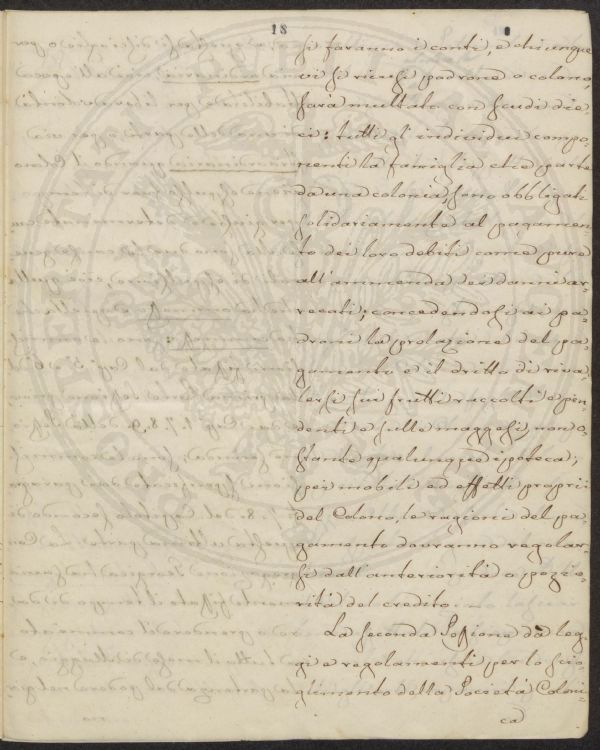 18
si faranno i conti, e chiunque
vi si ricusi padrone o colono,
sarà multato con scudi die-
ci: tutti gl' individui compo-
nenti la famiglia che parte
da una colonia, sono obbligati
solidariamente al pagamen-
to dei loro debiti come pure
all'ammenda dei danni ar-
recati; concedendosi ai pa-
droni la prelazione del pa-
gamento e il dritto di riva-
lersi sui frutti raccolti e pen-
denti e sulle maggesi, non o-
stante qualunque ipoteca;
pei mobili ed effetti proprii
del Colono, le ragioni del pa-
gamento dovranno regolar-
si dall'anteriorità o pozio-
rità del credito.
La seconda Sezione dà leg-
gi e regolamenti per lo scio-
glimento della Società Coloni-
ca